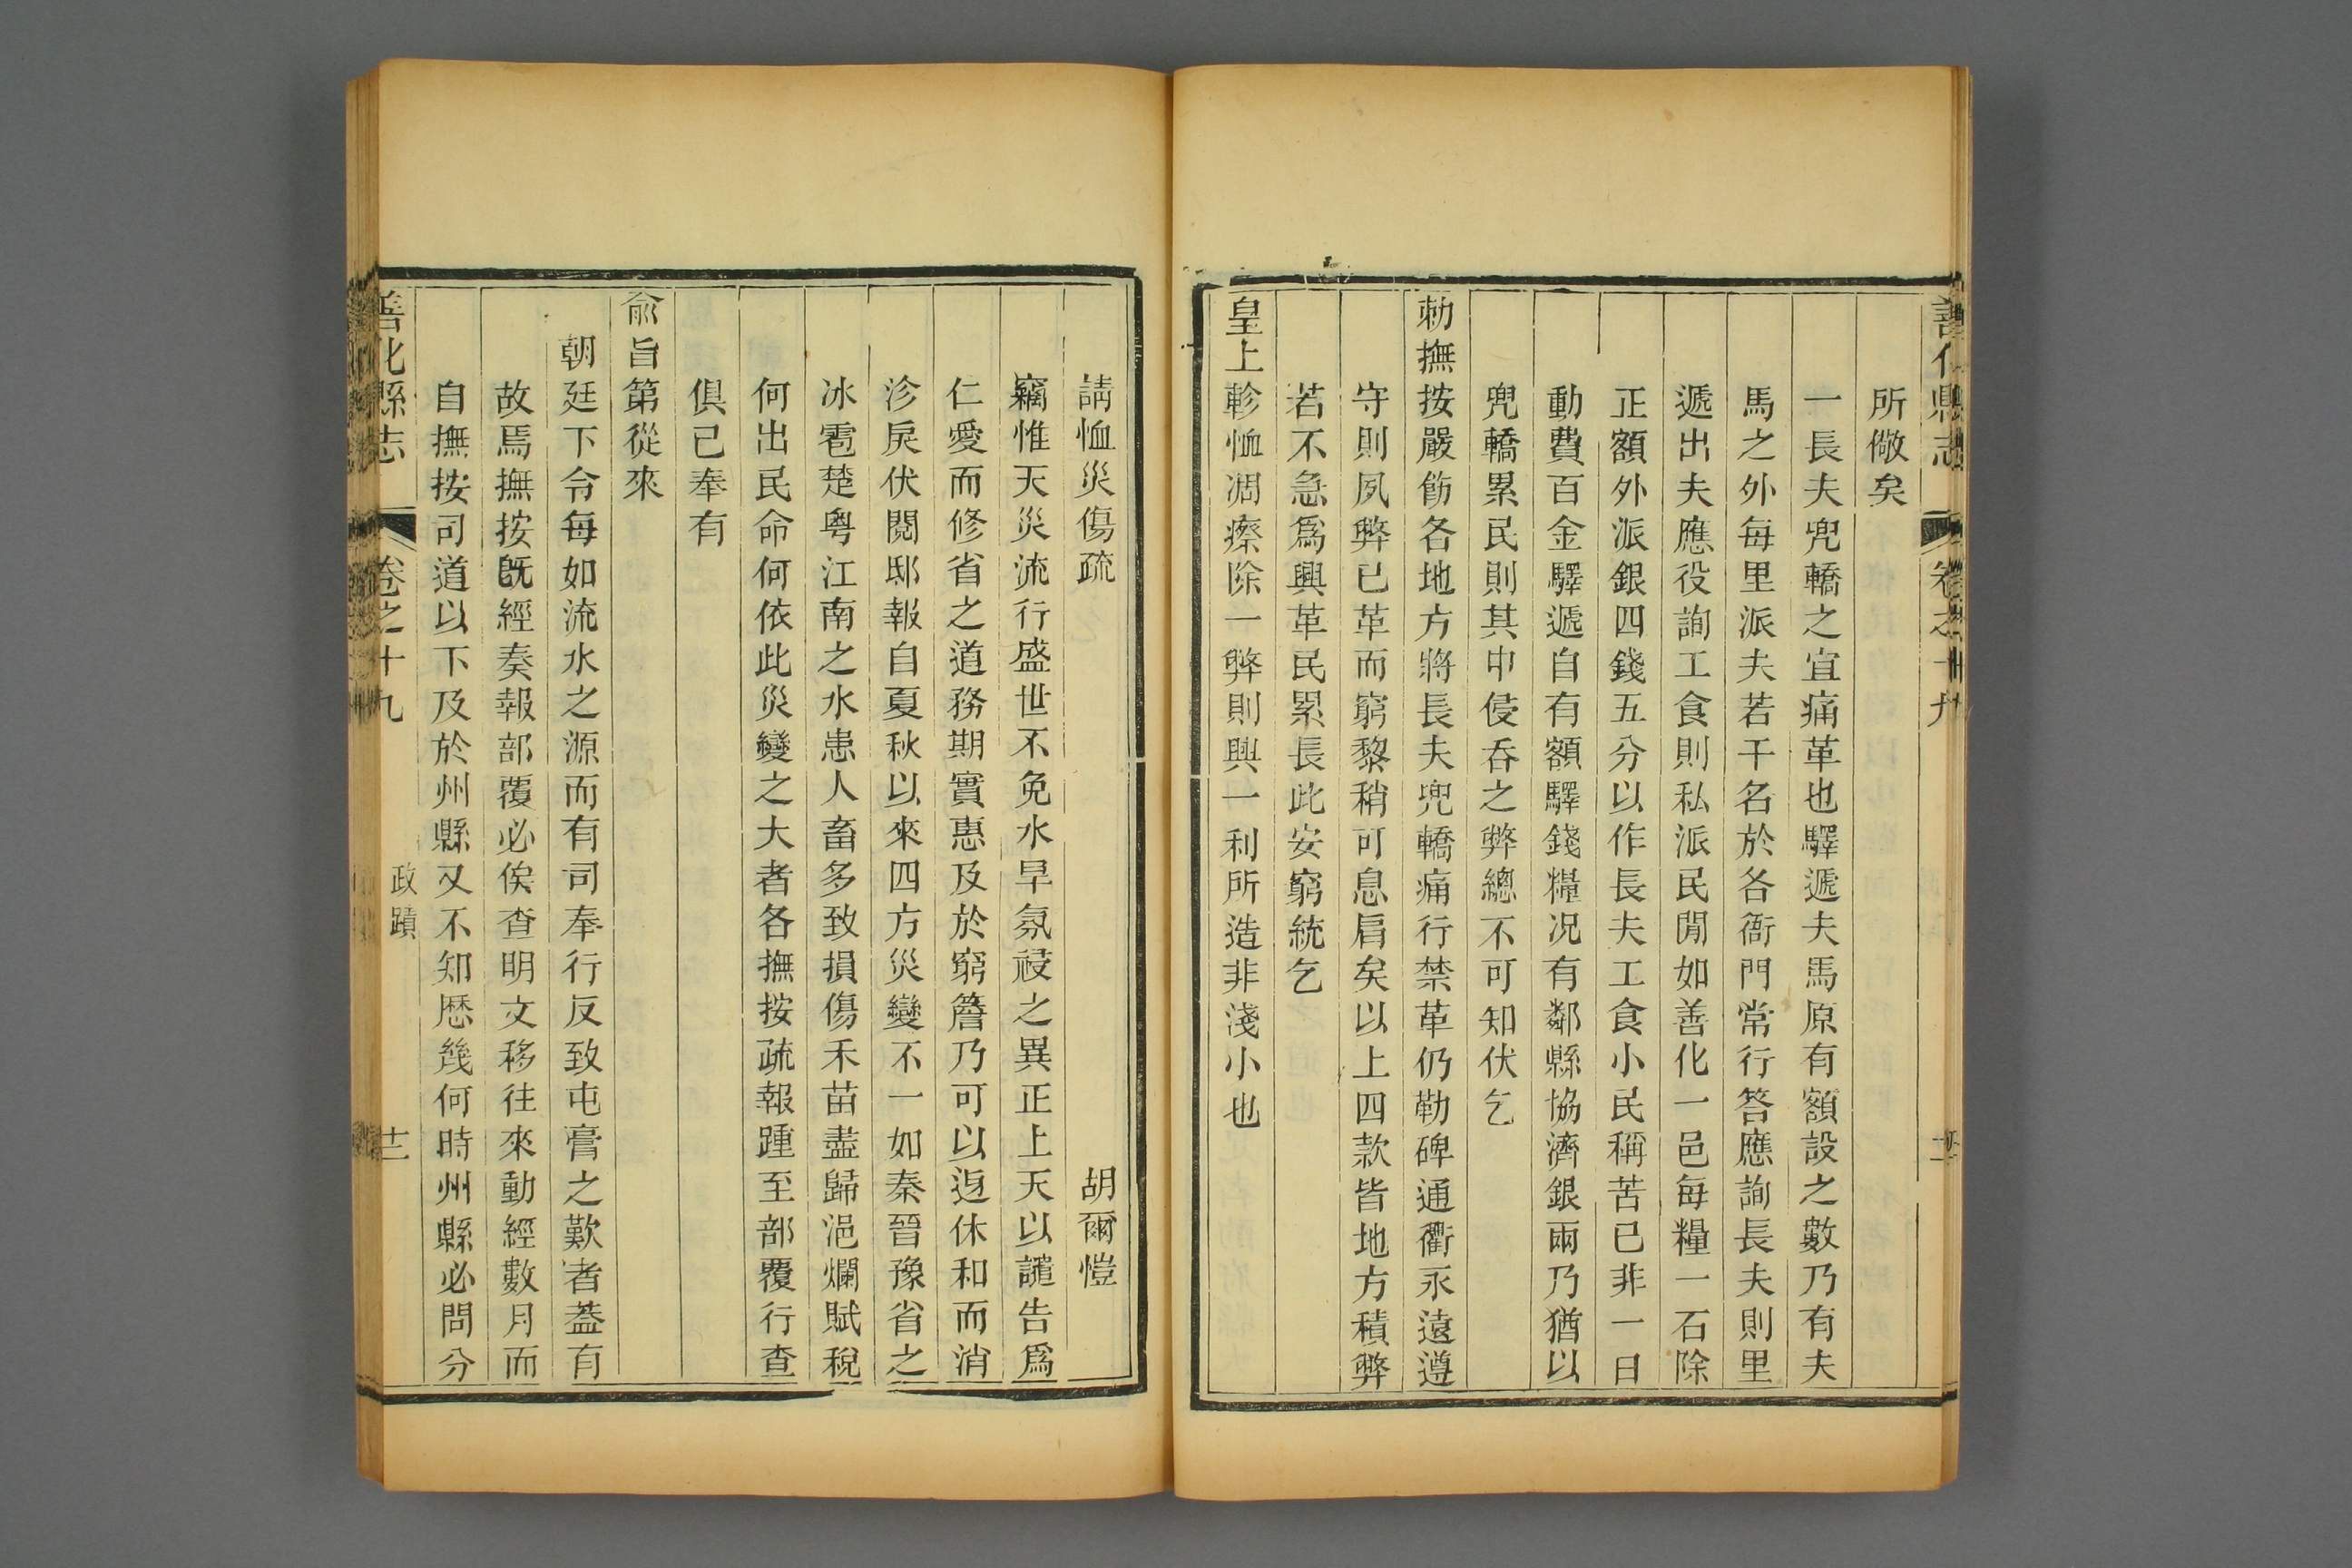 善化縣志
卷之十九
所儆矣
一長夫兜轎之宜痛革也驛遞夫馬原有額設之數乃有夫
馬之外每里派夫若干名於各衙門常行答應詢長夫則里
遞出夫應役詢工食則私派民閒如善化一邑每糧一石除
正額外派銀四錢五分以作長夫工食小民稱苦已非一日
動費百金驛遞自有額驛錢糧况有鄰縣協濟銀兩乃猶以
兜轎累民則其中侵吞之弊總不可知伏乞
勅撫按嚴飭各地方將長夫兜轎痛行禁革仍勒碑通衢永遠遵
守則夙弊已革而窮黎稍可息肩矣以上四款皆地方積弊
若不急爲興革民累長此安窮統乞
皇上軫恤凋瘵除一弊則興一利所造非淺小也
請恤災傷疏 胡爾愷
竊惟天災流行盛世不免水旱氛祲之異正上天以譴告爲
仁愛而修省之道務期實惠及於窮簷乃可以迓休和而消
沴戾伏閱邸報自夏秋以來四方災變不一如秦晉豫省之
冰雹楚粤江南之水患人畜多致損傷禾苗盡歸浥爛賦稅
何出民命何依此災變之大者各撫按疏報踵至部覆行查
俱已奉有
兪旨第從來
朝廷下令每如流水之源而有司奉行反致屯膏之歎者葢有
故焉撫按旣經奏報部覆必俟查明文移往來動經數月而
自撫按司道以下及於州縣又不知歷幾何時州縣必問分
善化縣志
卷之十九
政蹟
十二